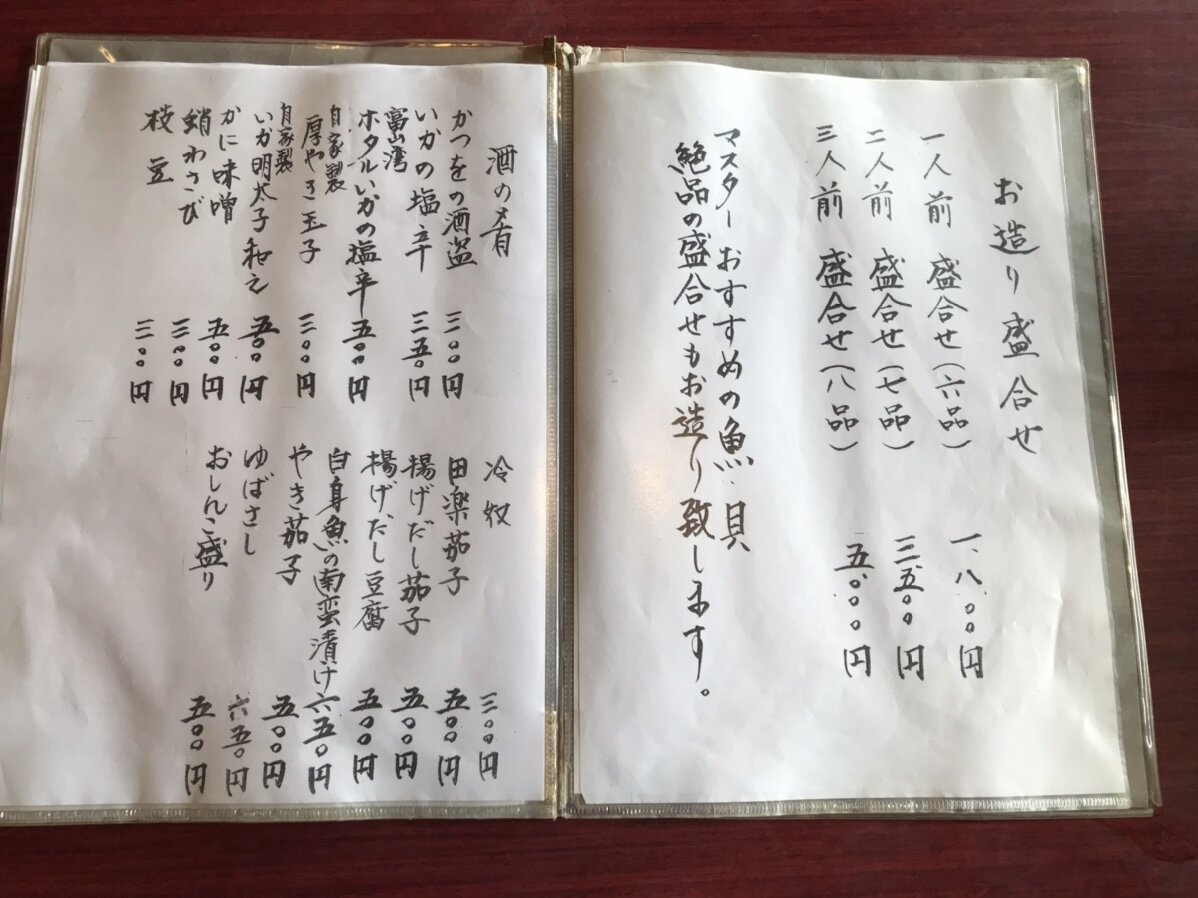 お造り盛合せ
一人前 盛合せ(六品) 一、八〇〇円
二人前 盛合せ(七品) 三、五〇〇円
三人前 盛合せ(八品) 五、〇〇〇円
マスターおすすめの魚、貝
絶品の盛合せもお造り致します。
酒の肴
かつをの酒盗 三〇〇円
いかの塩辛 三五〇円
富山湾
ホタルいかの塩辛 五〇〇円
自家製
厚やき玉子 三〇〇円
自家製
いか明太子和え 五〇〇円
かに味噌 五〇〇円
蛸わさび 三〇〇円
枝豆 三〇〇円
冷奴 三〇〇円
田楽茄子 五〇〇円
揚げだし茄子 五〇〇円
揚げだし豆腐 五〇〇円
白身魚の南蛮漬け 六五〇円
やき茄子 五〇〇円
ゆばさし 六五〇円
おしんこ盛り 五〇〇円